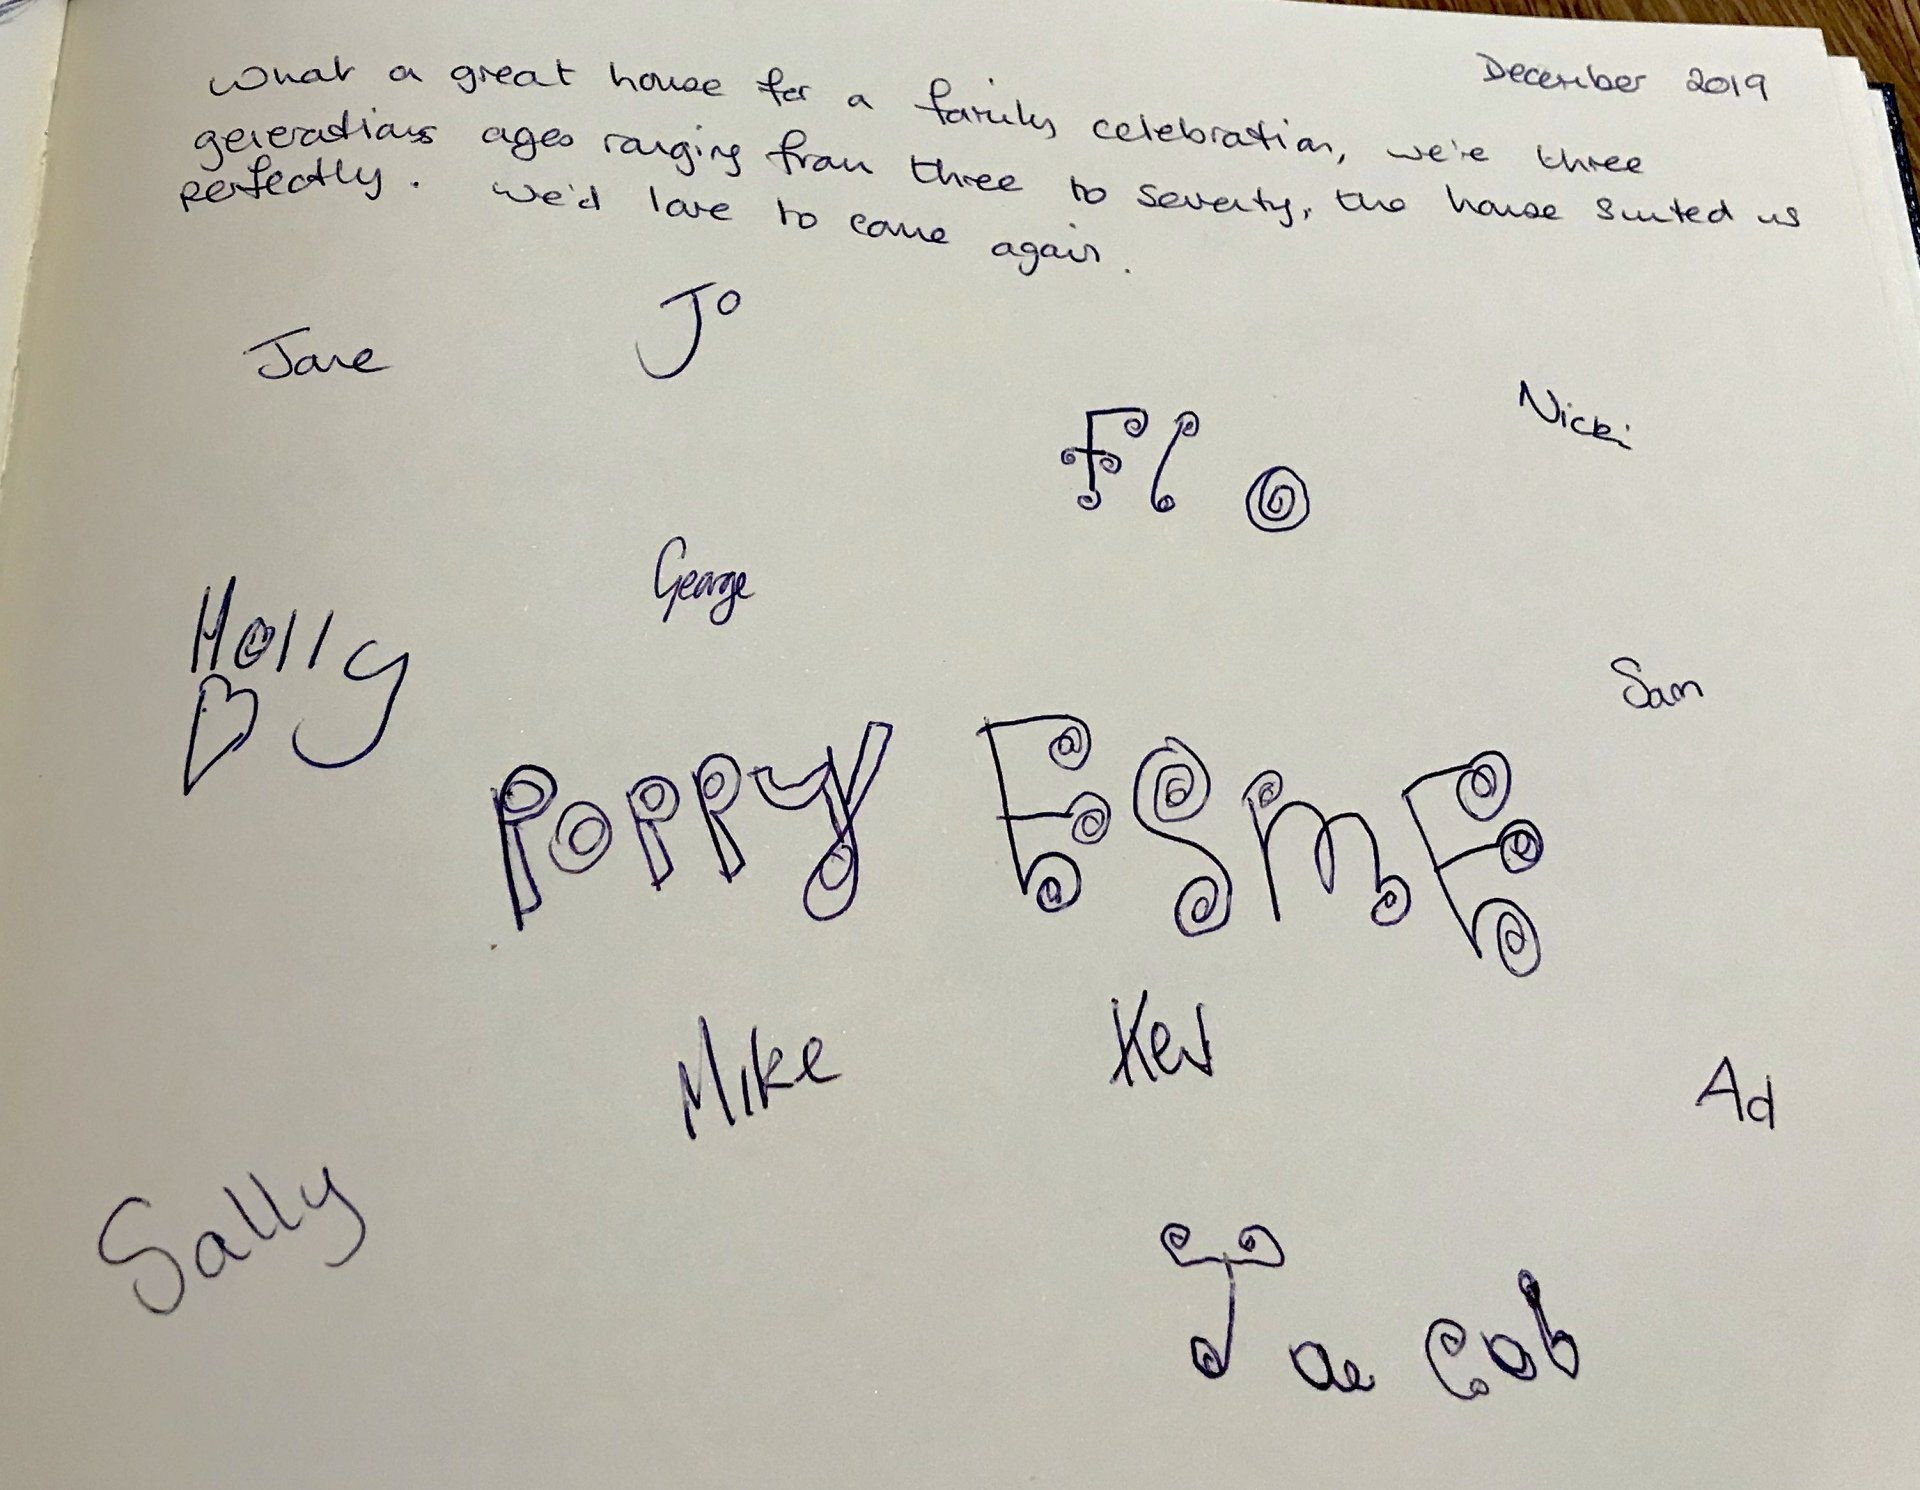 December 2019
What a great house for a family celebration, we're three
generations ages ranging from three to seventy, the house suited us
perfectly. We'd love to come again.
Jane
Jo
Flo
Nicki
George
Holly
Sam
Poppy
ESME
Mike
Kev
Ad
Sally
Jacob